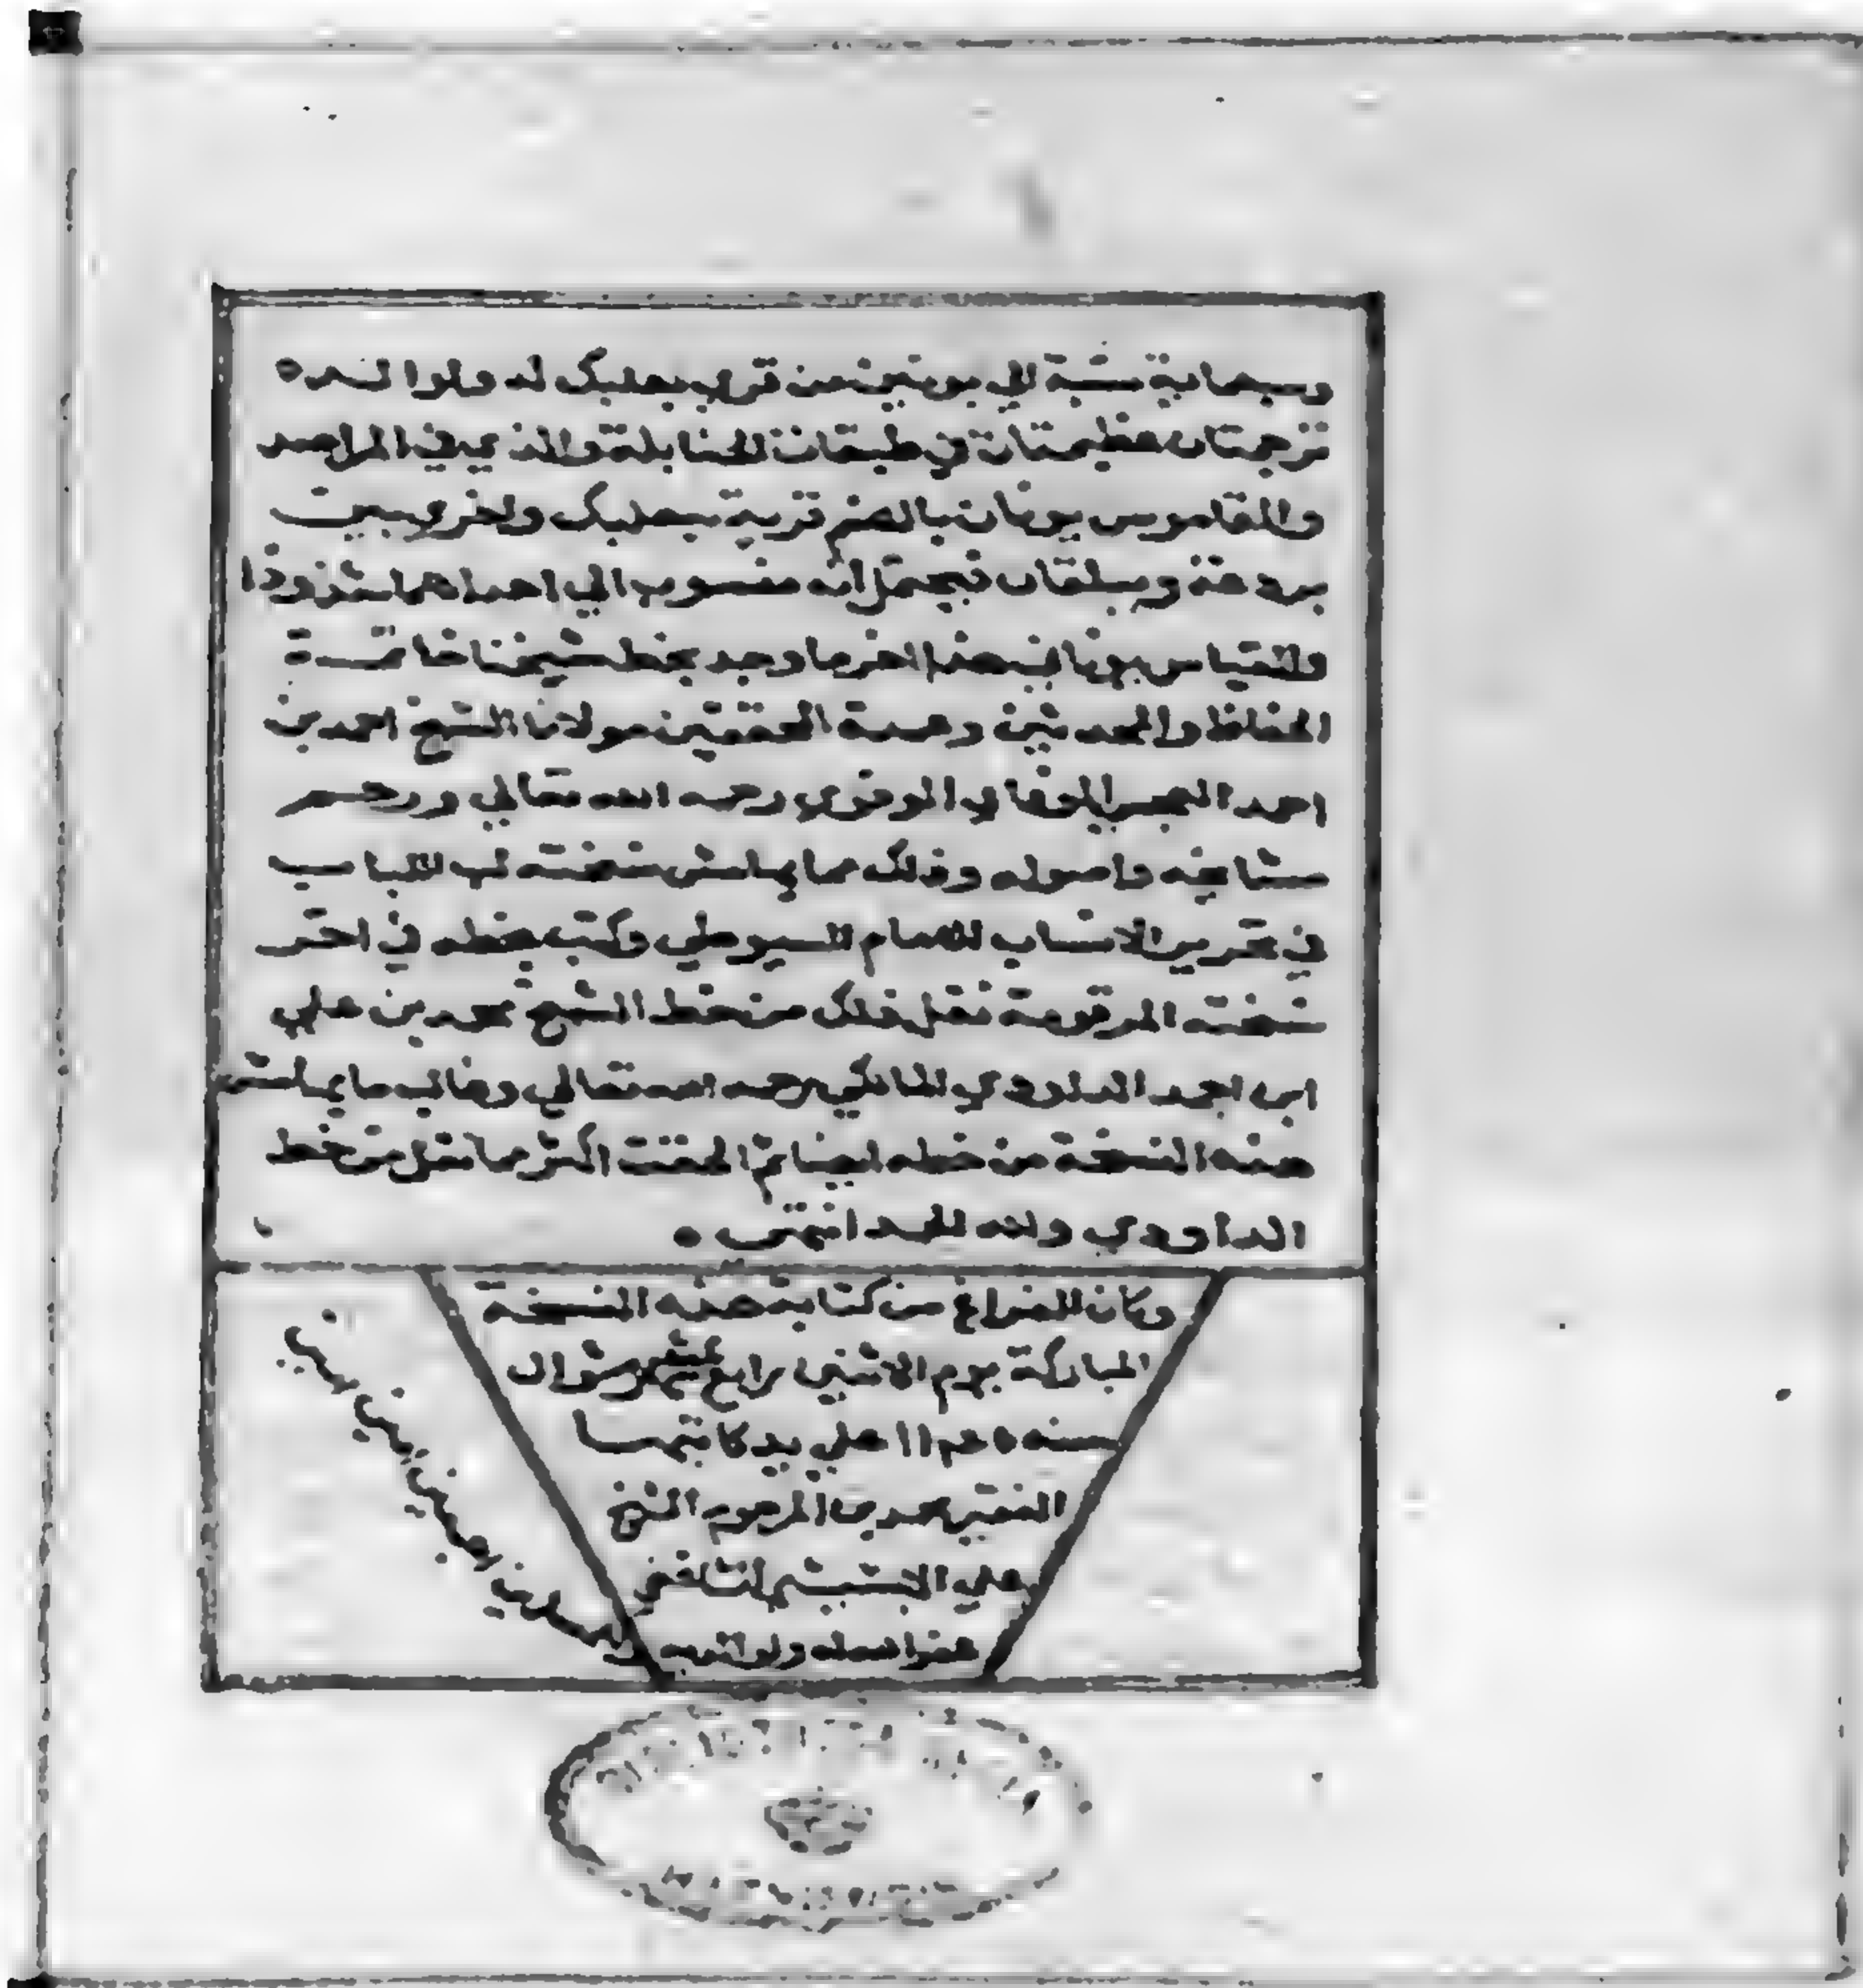 وسبعماية نسبة الي يونين من قري بعلبك له ولوالده
ترجمتان عظيمتان في طبقات الحنابلة والذي في المراصد
والقاموس يونان بالضم قرية ببعلبك واخري بين
بردعة وبيلقان فيحتمل انه منسوب الي احداهما شذوذا
والقياس يوناني هذا اخر ما وجد بخط شيخنا خاتمة
الحفاظ والمحدثين وعمدة المحققين مولانا الشيخ احمد بن
احمد العجمي الوفاي رحمه الله تعالي ورحم
مشايخه واصوله وذلك مما بهامش نسخته لب اللباب
في تحرير الانساب للامام السيوطي وكتب بخطه في اخر
نسخته المرقومة نقل ذلك من خط الشيخ محمد بن علي
ابن احمد الداودي المالكي رحمه الله تعالي وغالب ما بهامش
هذه النسخة من خطه ايضا ثم الحقت اكثر ما نقل من خط
الداوودي ولله الحمد انتهي
وكان الفراغ من كتابة هذه النسخة
المباركة يوم الاثنين رابع عشر شهر شوال
سنه علي يد كاتبها
الفقير محمد بن المرحوم الشيخ
علي الشافعي
غفر الله له ولوالديه
امين امين